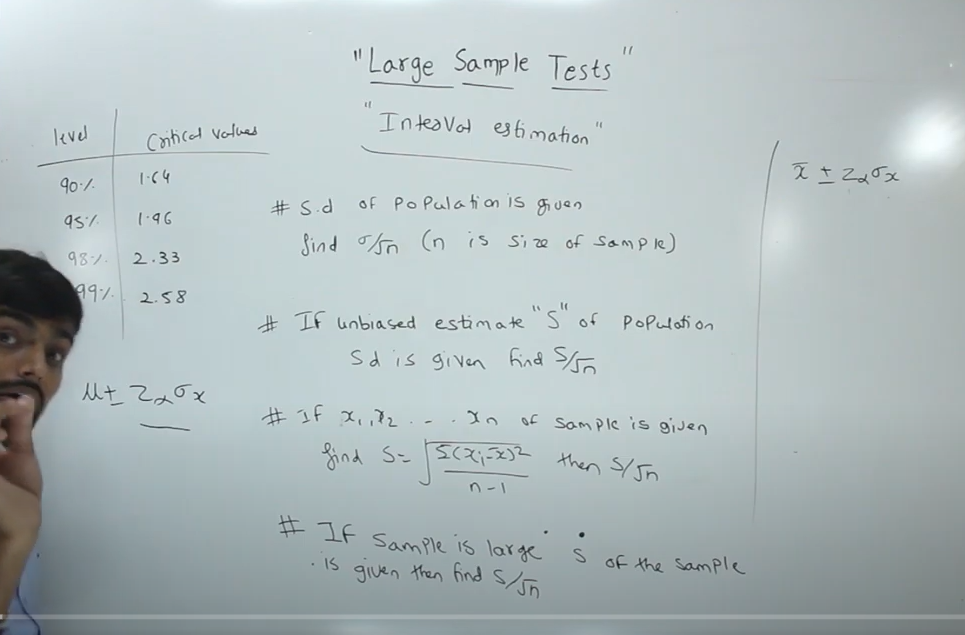 "Large Sample Tests"
"Interval estimation"
level Critical values
90% 1.64
95% 1.96
98% 2.33
99% 2.58
μ± Zασx
# S.d of Population is given
find σ/√n (n is size of sample)
# If unbiased estimate "S" of Population
Sd is given find S/√n
# If x₁, x₂ . . . . xn of sample is given
find S= √Σ(xi-x̄)²/n-1 then S/√n
# If Sample is large s of the sample
is given then find S/√n
x̄ ± Zασx